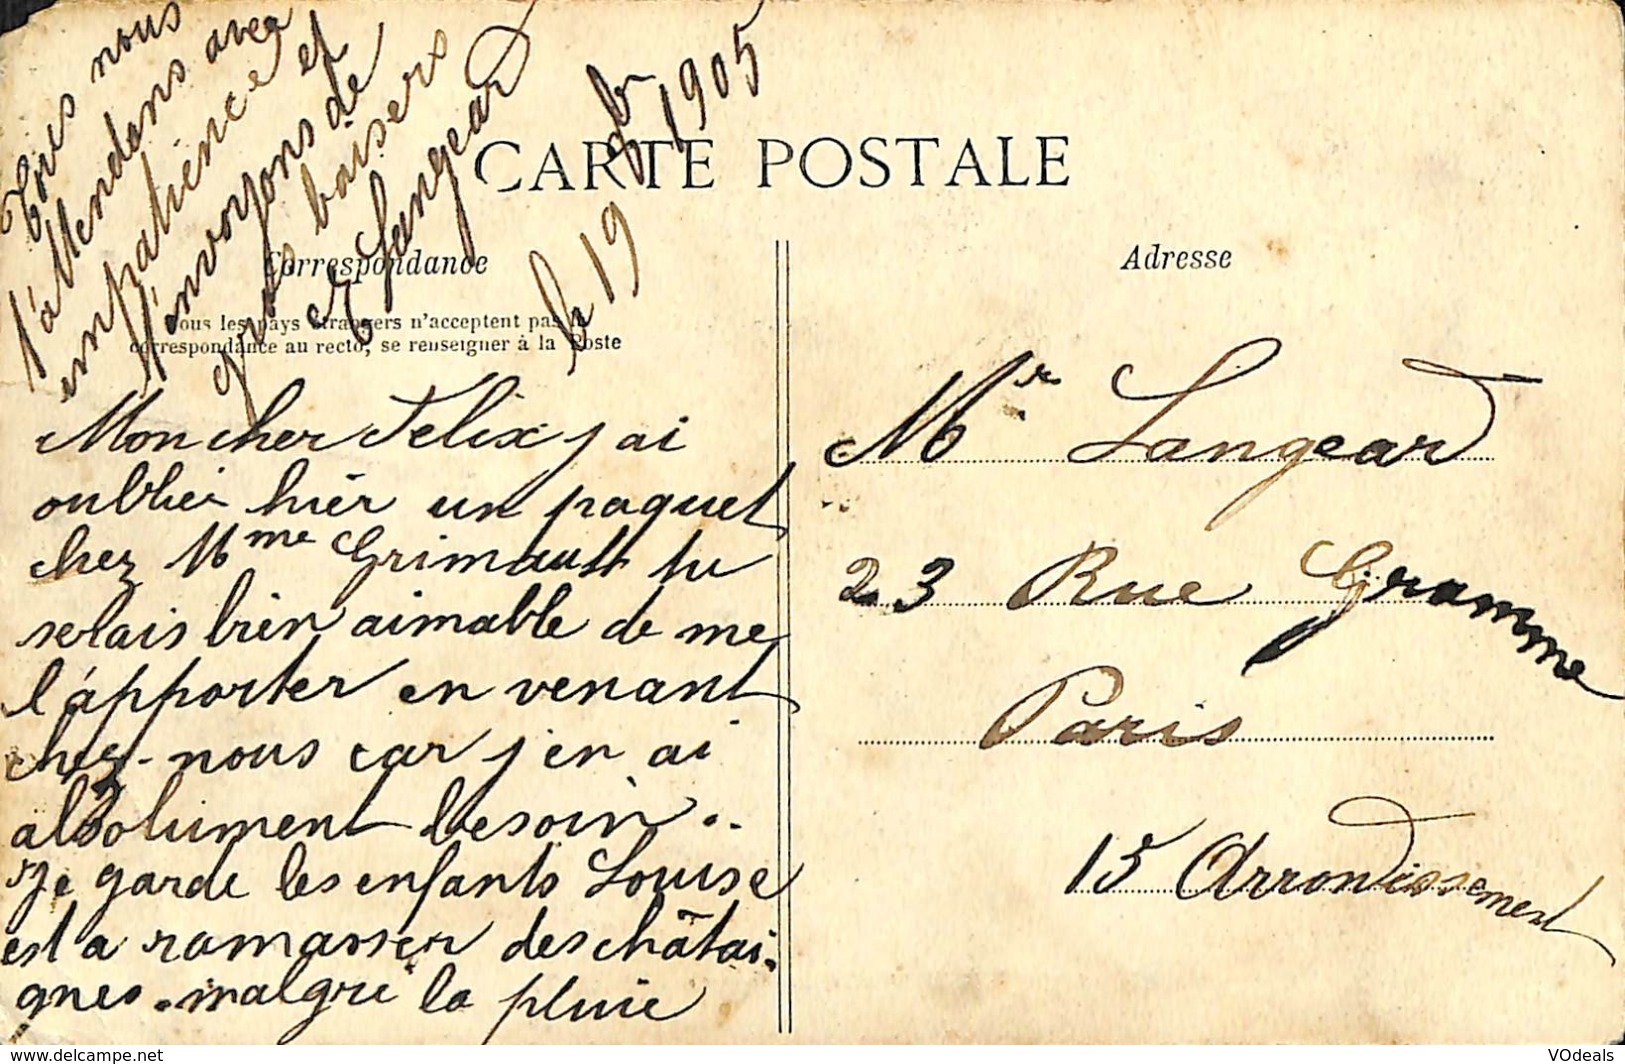 CARTE POSTALE
Correspondance
Tous les pays étrangers n'acceptent pas la
correspondance au recto, se renseigner à la Poste
le 19 8br 1905
Mon cher Felix j ai
oublié hier un paquet
chez Mme Grimault tu
serais bien aimable de me
l'apporter en venant
chez-nous car j'en ai
absolument besoin..
Je garde les enfants Louise
est a ramasser des châtai-
gnes. malgré la pluie
Tous nous
t'attendons avec
impatience et
t'envoyons de
gros baisers
Langeard
Adresse
Mr Langeard
23 Rue Gramme
Paris
15 Arrondissement
www.delcampe.net
VOdeals